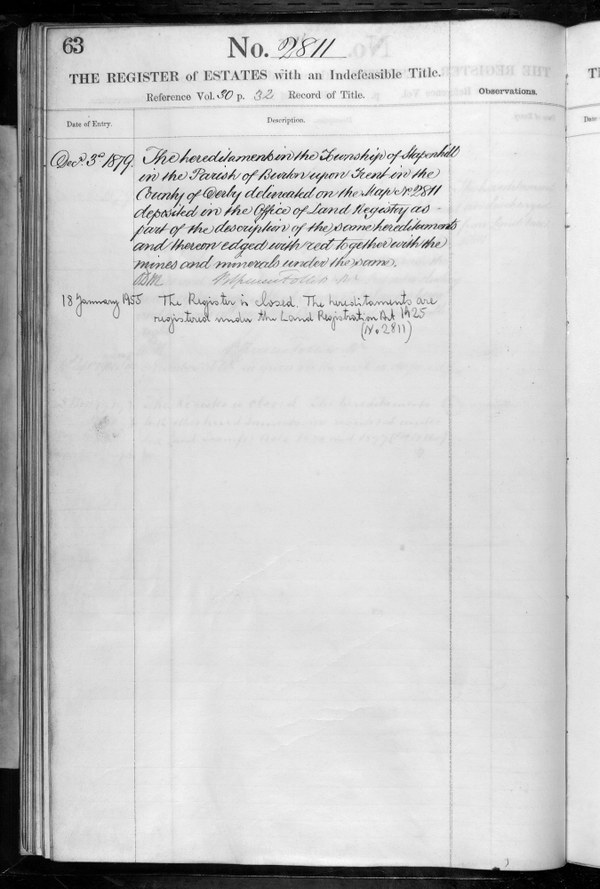 63
No. 2811
THE REGISTER of ESTATES with an Indefeasible Title.
Reference Vol. 30 p. 32 Record of Title.
Observations.
Date of Entry.
Description.
Decr. 3d 1879. The hereditaments in the Township of Stapenhill
in the Parish of Burton upon Trent in the
County of Derby delineated on the Map No. 2811
deposited in the Office of Land Registry as
part of the description of the same hereditaments
and thereon edged with red together with the
mines and minerals under the same.
18 January 1955 The Register is closed. The hereditaments are
registered under the Land Registration Act 1925
(No 2811)